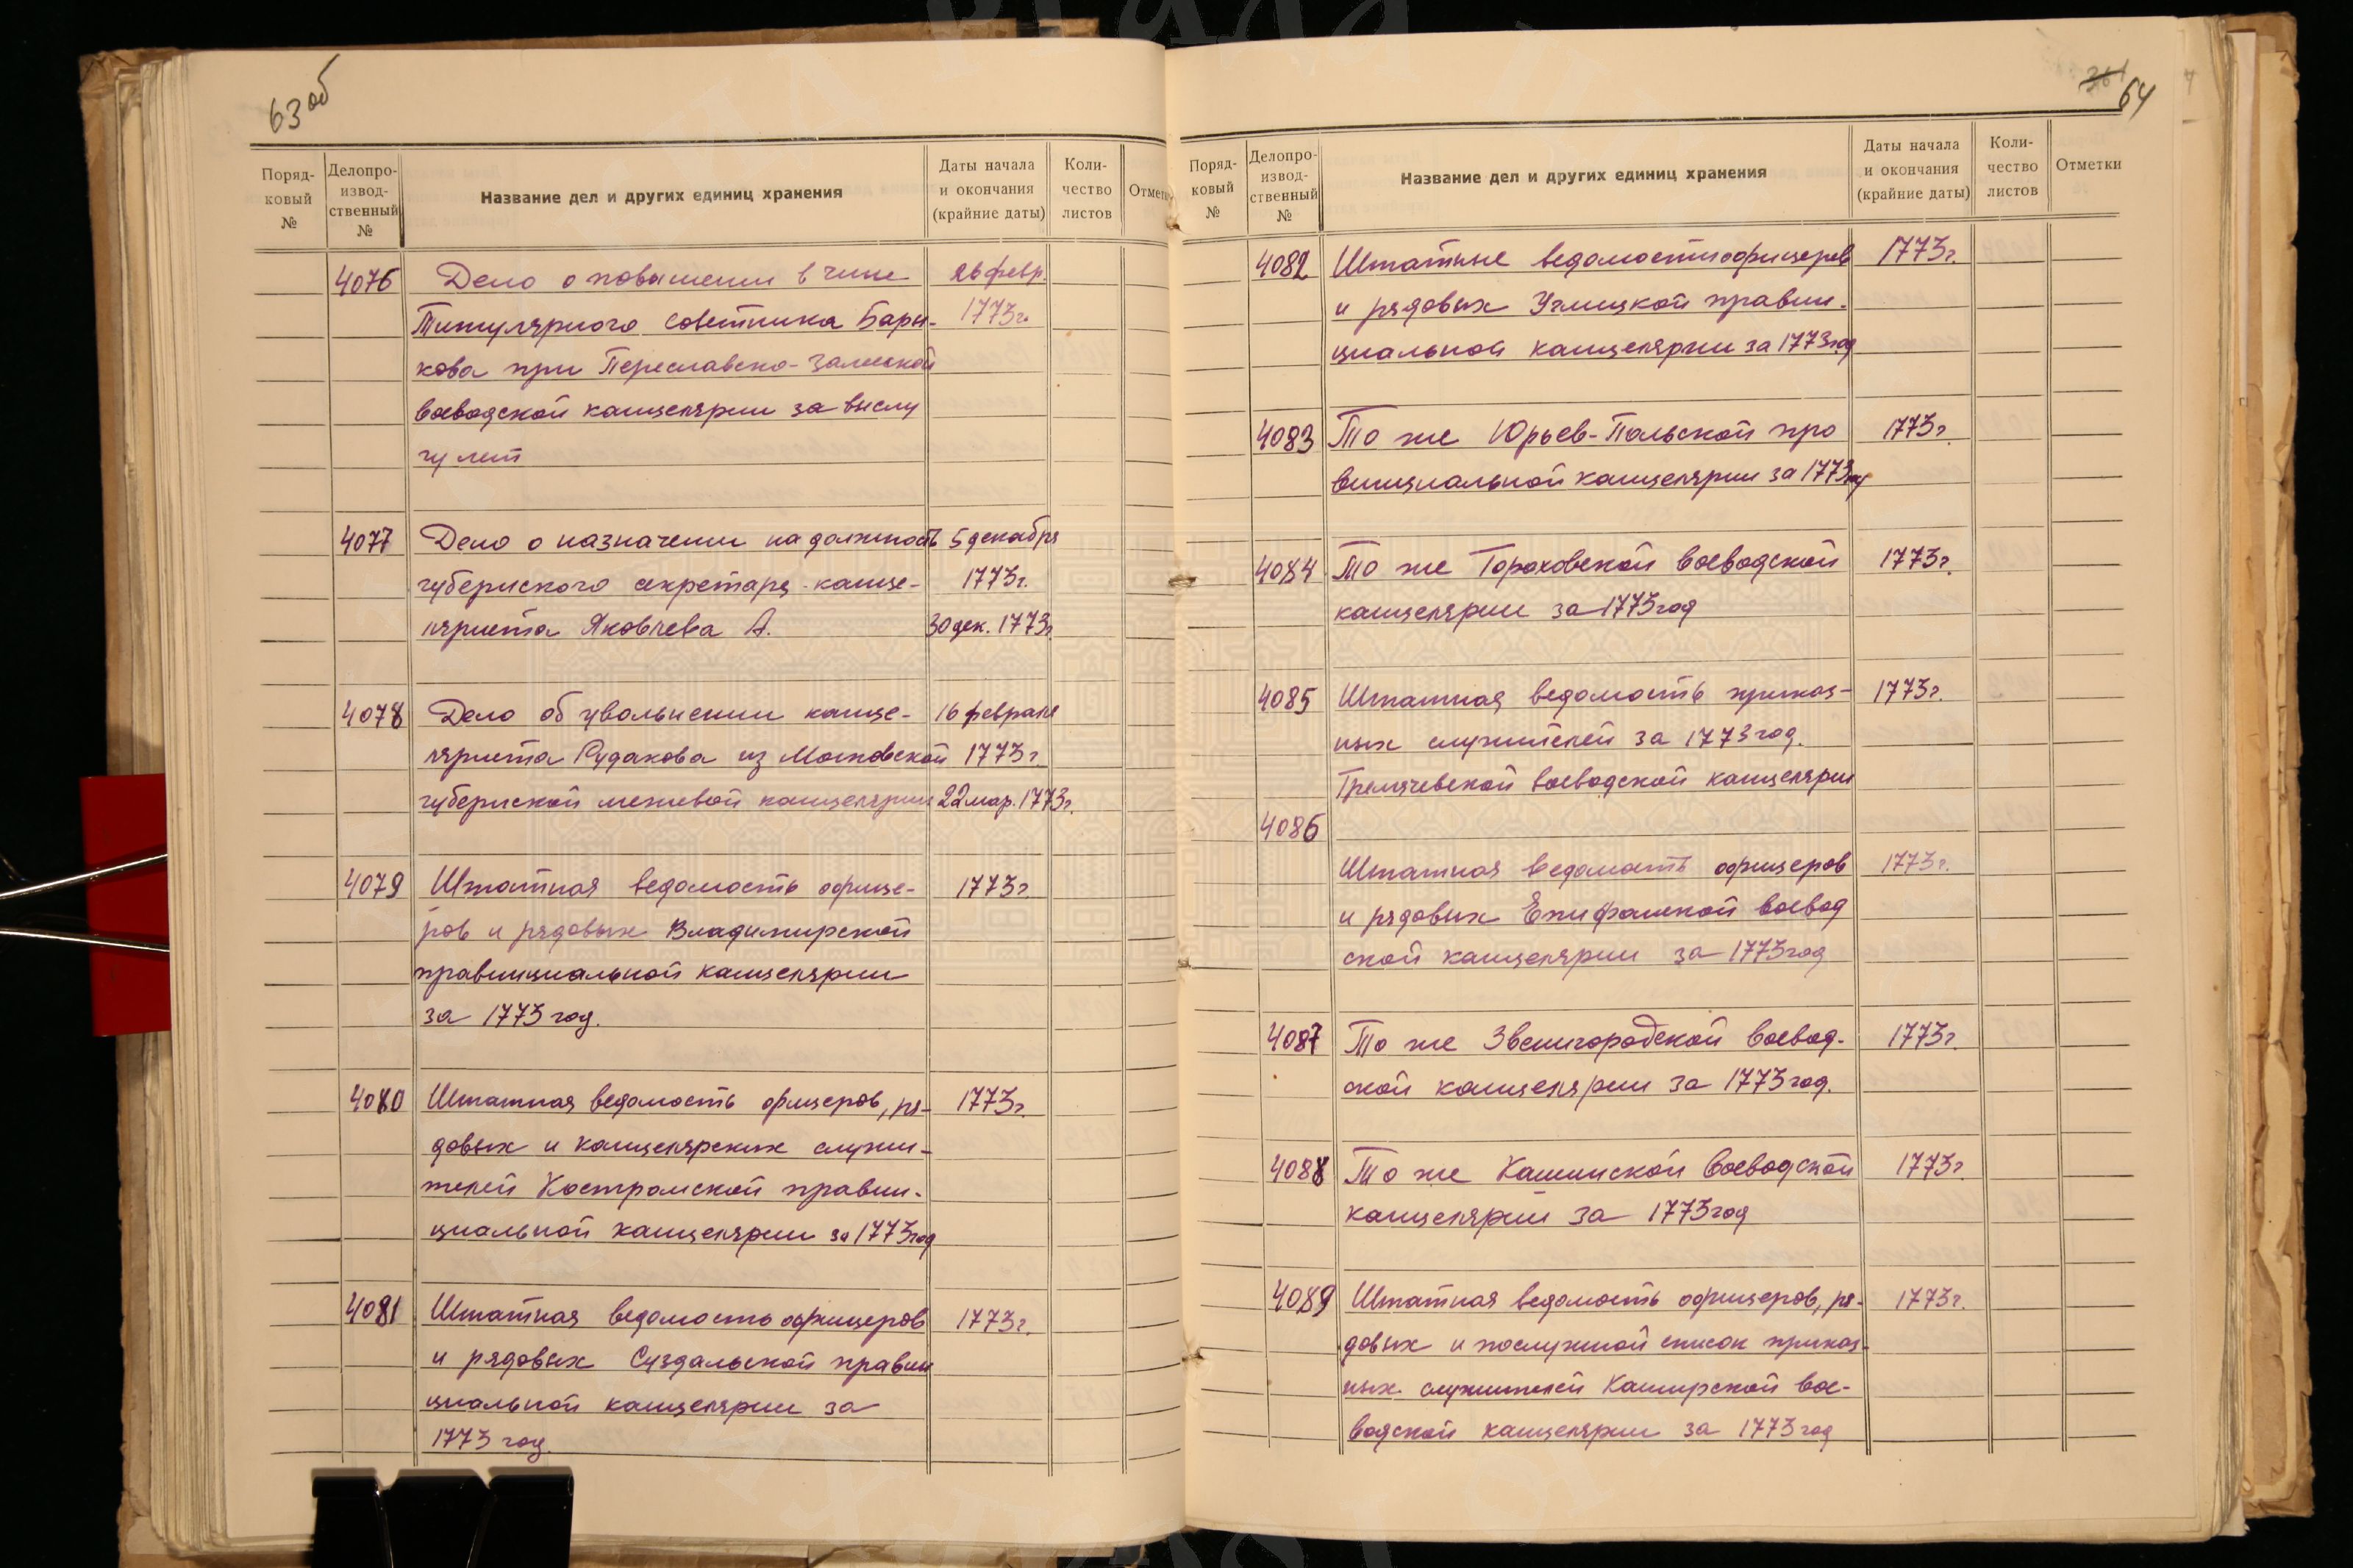 63об
Поряд-
ковый
№
Делопро-
извод-
ственный
№
Название дел и других единиц хранения
Даты начала
и окончания
(крайние даты)
Коли-
чество
листов
Отметк
4076 Дело о повышении в чине 26 февр.
Титулярного советника Бары- 1773г.
кова при Переславско-Залесской
воеводской канцелярии за выслу
гу лет
4077 Дело о назначении на должность 5 декабря
губернского секретаря канце- 1773г.
ляриста Яковлева А. 30 дек. 1773г.
4078 Дело об увольнении канце- 16 февраля
ляриста Рудакова из Московской 1773г.
губернской межевой канцелярии 22 мар. 1773г.
4079 Штатная ведомость офице- 1773г.
ров и рядовых Владимирской
правинциальной канцелярии
за 1773 год.
4080 Штатная ведомость офицеров, ря- 1773г.
довых и канцелярских служи-
телей Костромской правин-
циальной канцелярии за 1773год
4081 Штатная ведомость офицеров 1773г.
и рядовых Суздальской правин
циальной канцелярии за
1773 год.
64
Поряд-
ковый
№
Делопро-
извод-
ственный
№
Название дел и других единиц хранения
Даты начала
и окончания
(крайние даты)
Коли-
чество
листов
Отметки
4082 Штатные ведомости офицеров 1773г.
и рядовых Углицкой правин-
циальной канцелярии за 1773год
4083 То же Юрьев-Польской про 1773г.
винциальной канцелярии за 1773год
4084 То же Гороховской воеводской 1773г.
канцелярии за 1773год
4085 Штатная ведомость приказ- 1773г.
ных служителей за 1773год.
Гремячевской воеводской канцелярии
4086
Штатная ведомость офицеров 1773г.
и рядовых Епифанской воевод
ской канцелярии за 1773год
4087 То же Звенигородской воевод- 1773г.
ской канцелярии за 1773год.
4088 То же Кашинской воеводской 1773г.
канцелярии за 1773год
4089 Штатная ведомость офицеров, ря- 1773г.
довых и послужной список приказ-
ных служителей Каширской вое-
водской канцелярии за 1773год